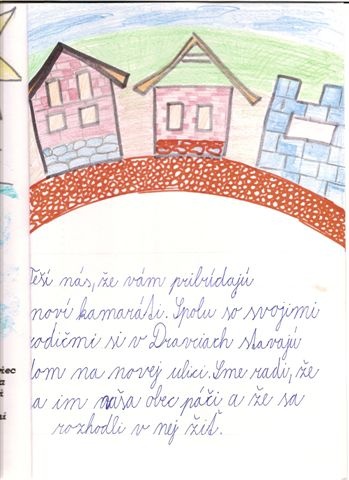 Teší nás, že vám pribúdajú
noví kamaráti. Spolu so svojimi
rodičmi si v Dravciach stavajú
dom na novej ulici. Sme radi, že
sa im naša obec páči a že sa
rozhodli v nej žiť.